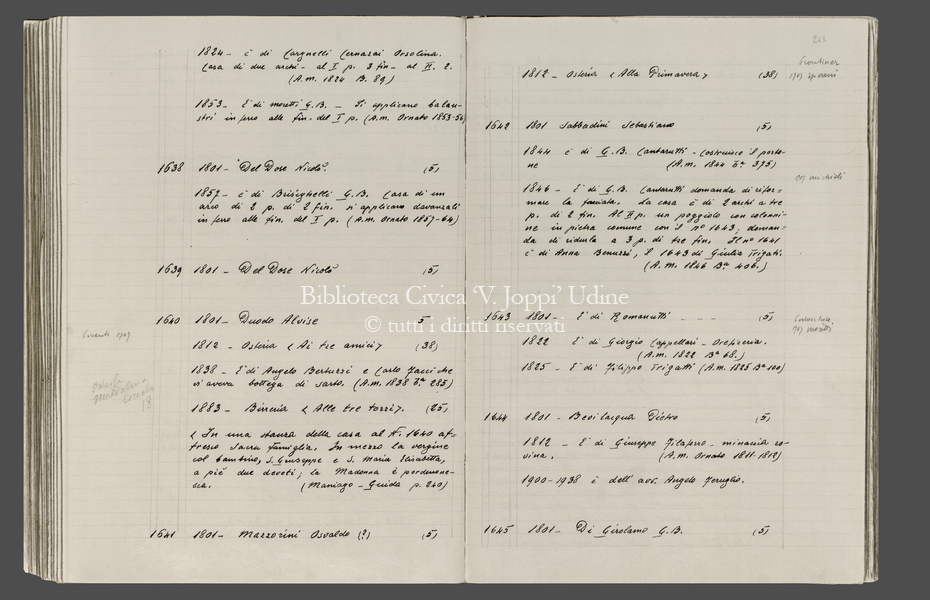 1824 - è di Cargnelli Cernazai Orsolina.
Casa di due archi - al I p. 3 fin - al II. 2.
(A.m. 1824 B. 89)
1853 - È di Moretti G.B. - Si applicano balau-
stri in ferro alle fin. del I p. (A.m. Ornato 1853-56)
1638 1801 - Del Dose Nicolò (5)
1857 - è di Brisighelli G.B. Casa di un
arco di 2 p. di 2 fin. si applicano davanzali
in ferro alle fin. del I p. (A.m. Ornato 1857-64)
1639 1801 - Del Dose Nicolò (5)
1640 1801 - Duodo Alvise 5
1812 - Osteria < Ai tre amici > (38)
1838 - È di Angelo Bertuzzi e Carlo che
vi aveva bottega di sarto. (A.m. 1838 Ba 285)
1883 - Birreria < Alle tre torri >. (25)
< In una stanza della casa al N. 1640 af-
fresco Sacra Famiglia. In mezzo la vergine
col bambino, S. Giuseppe e S. Maria Elisabetta,
a pié due devoti; la Madonna è pordenone-
sca. (Maniago - Guida p. 240)
1641 1801 - Mazzorini Osvaldo (?) (5)
1907
213
1812 - Osteria < Alla Primavera > (38)
1907
1642 1801 Sabbadini Sebastiano (5)
1844 è di G.B. Cantarutti - costruisce il porto-
ne (A.m. 1844 Ba 375)
1846 - È di G.B. Cantarutti domanda di rifor-
mare la facciata. La casa è di 2 archi a tre
p. di 2 fin. Al II p. un poggiolo con colonni-
ne in pietra comune con il nº 1643; doman-
da di ridurla a 3 p. di tre fin. Il nº 1641
è di Anna Benuzzi, il 1643 di Giulia Trigatti.
(A.m. 1846 Ba 406.)
1643 1801 - È di Romanutti - - - (5)
1907 Moretti
1822 È di Giorgio Cappellari - Oreficeria.
(A.m. 1822 Ba 68.)
1825 - È di Filippo Trigatti (A.m. 1825 Ba 100)
1644 1801 - Bevilacqua Pietro (5)
1812 - È di Giuseppe Filaferro - minaccia ro-
vina. (A.m. Ornato 1811-1812)
1900-1938 è dell'avv. Angelo Feruglio.
1645 1801 - Di Girolamo G.B. (5)
Biblioteca Civica 'V. Joppi' Udine
© tutti i diritti riservati